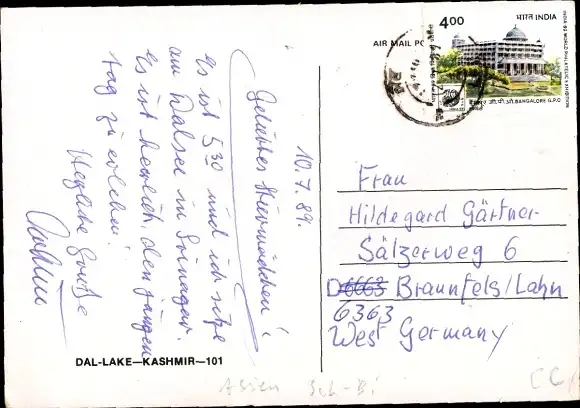 10.7.89.
Geliebtes
Es ist 5 30 und ich sitze
am Dalsee in Srinagar.
Es ist herrlich, den jungen
Tag zu erleben!
Herzliche Grüße
DAL-LAKE—KASHMIR—101
AIR MAIL
4.00
भारत INDIA
INDIA-89 WORLD PHILATELIC EXHIBITION
जी.पी.ओ. BANGALORE G.P.O
Frau
Hildegard Gärtner
Sälzerweg 6
D 6663 Braunfels/Lahn
6363
West Germany
Asien Sch-Bi